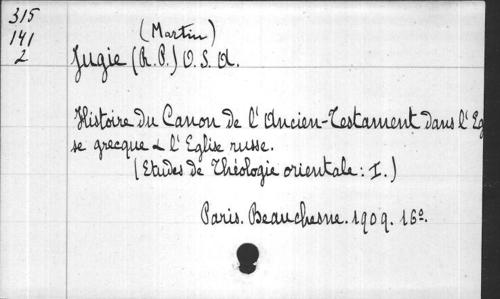 315
141
2
(Martin)
Jugie (R. P.) O. S. A.
Histoire du Canon de l'Ancien-Testament dans l'Eg
se grecque & l'Eglise russe.
(Etudes de Théologie orientale: I.)
Paris. Beauchesne. 1909. 16º.